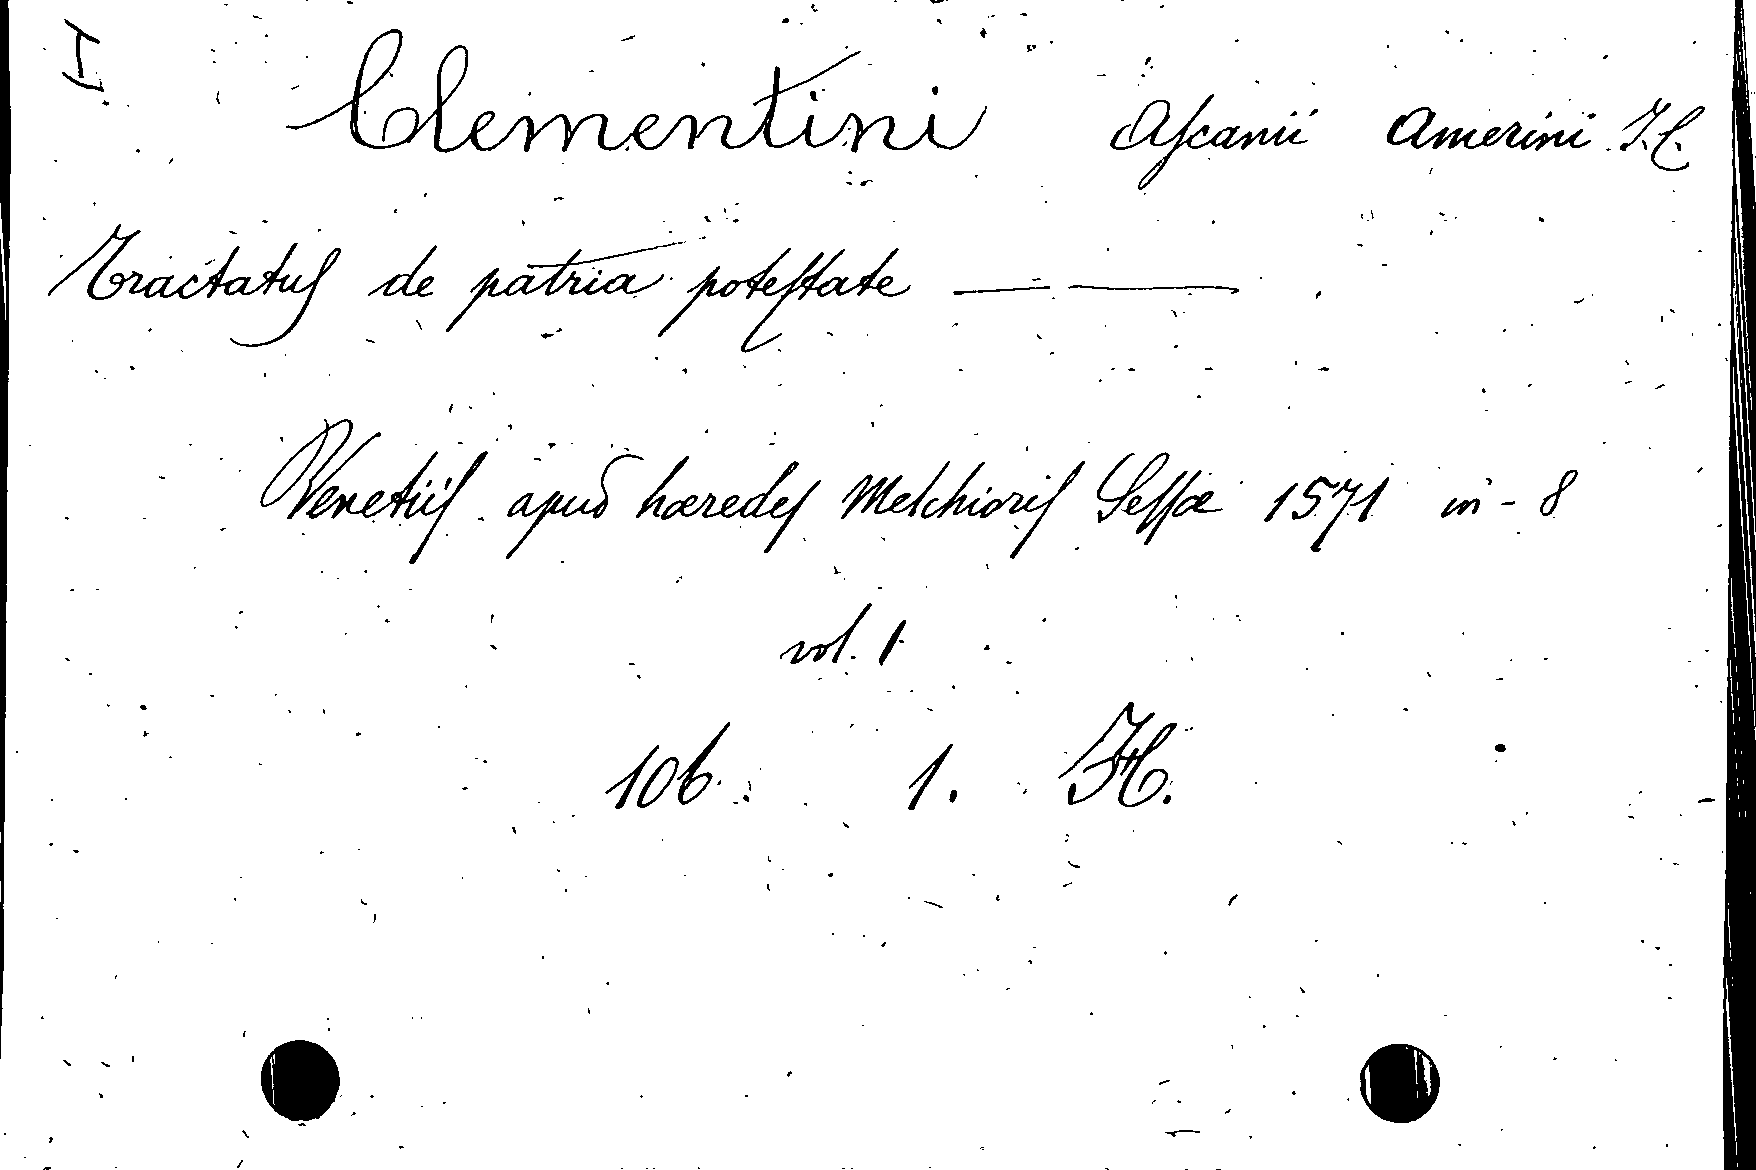 I
Clementini Ascanii Amerini J.C.
Tractatus de patria potestate —
Venetiis apud hæredes Melchioris Sessæ 1571 in-8
vol. 1
106. 1. H.